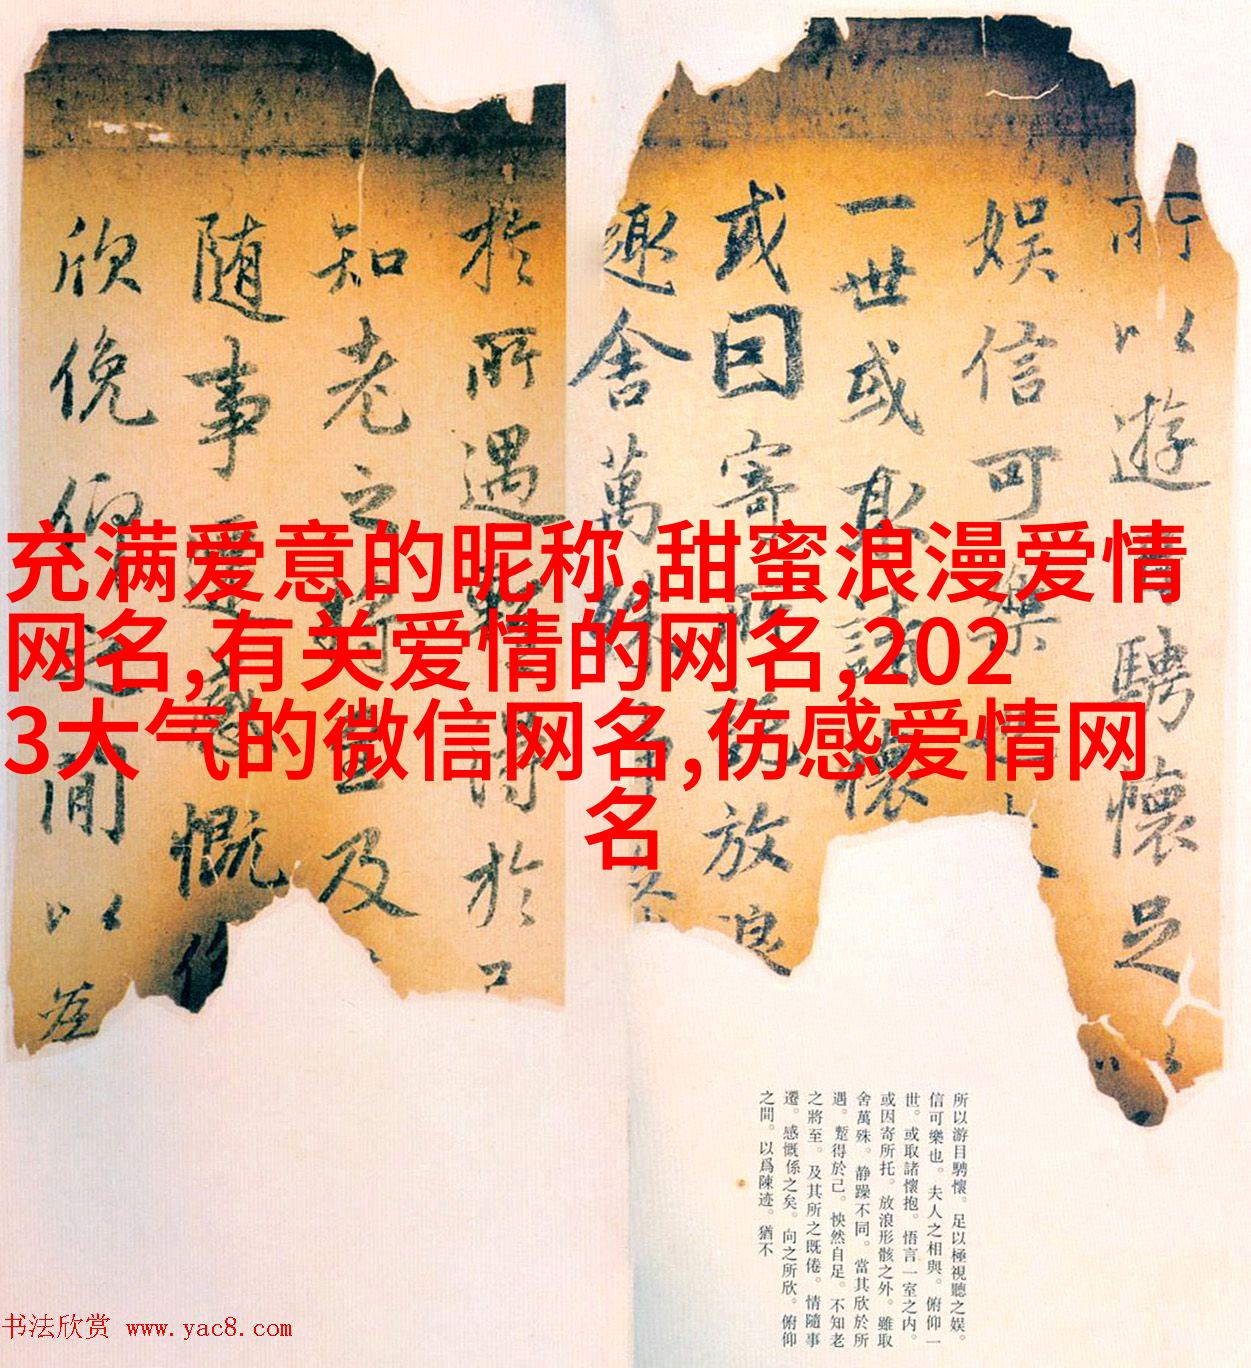 充满爱意的昵称,甜蜜浪漫爱情
网名,有关爱情的网名,202
3大气的微信网名,伤感爱情网
名
所以遊目騁懷足以
娛信可樂也
一世或取諸懷
或因寄所託放浪
趣舍萬殊靜
於所遇暫得於己
知老之將至及
隨事遷感慨係
欣俛仰之間以為
所以游目騁懷。足以極視聽之娛。
信可樂也。夫人之相與。俯仰一
世。或取諸懷抱。悟言一室之内。
或因寄所托。放浪形骸之外。雖取
舍萬殊。静躁不同。當其欣於所
遇。蹔得於己。怏然自足。不知老
之將至。及其所之既倦。情隨事
遷。感慨係之矣。向之所欣。俯仰
之間。以爲陳迹。猶不
书法欣赏 www.yac8.com